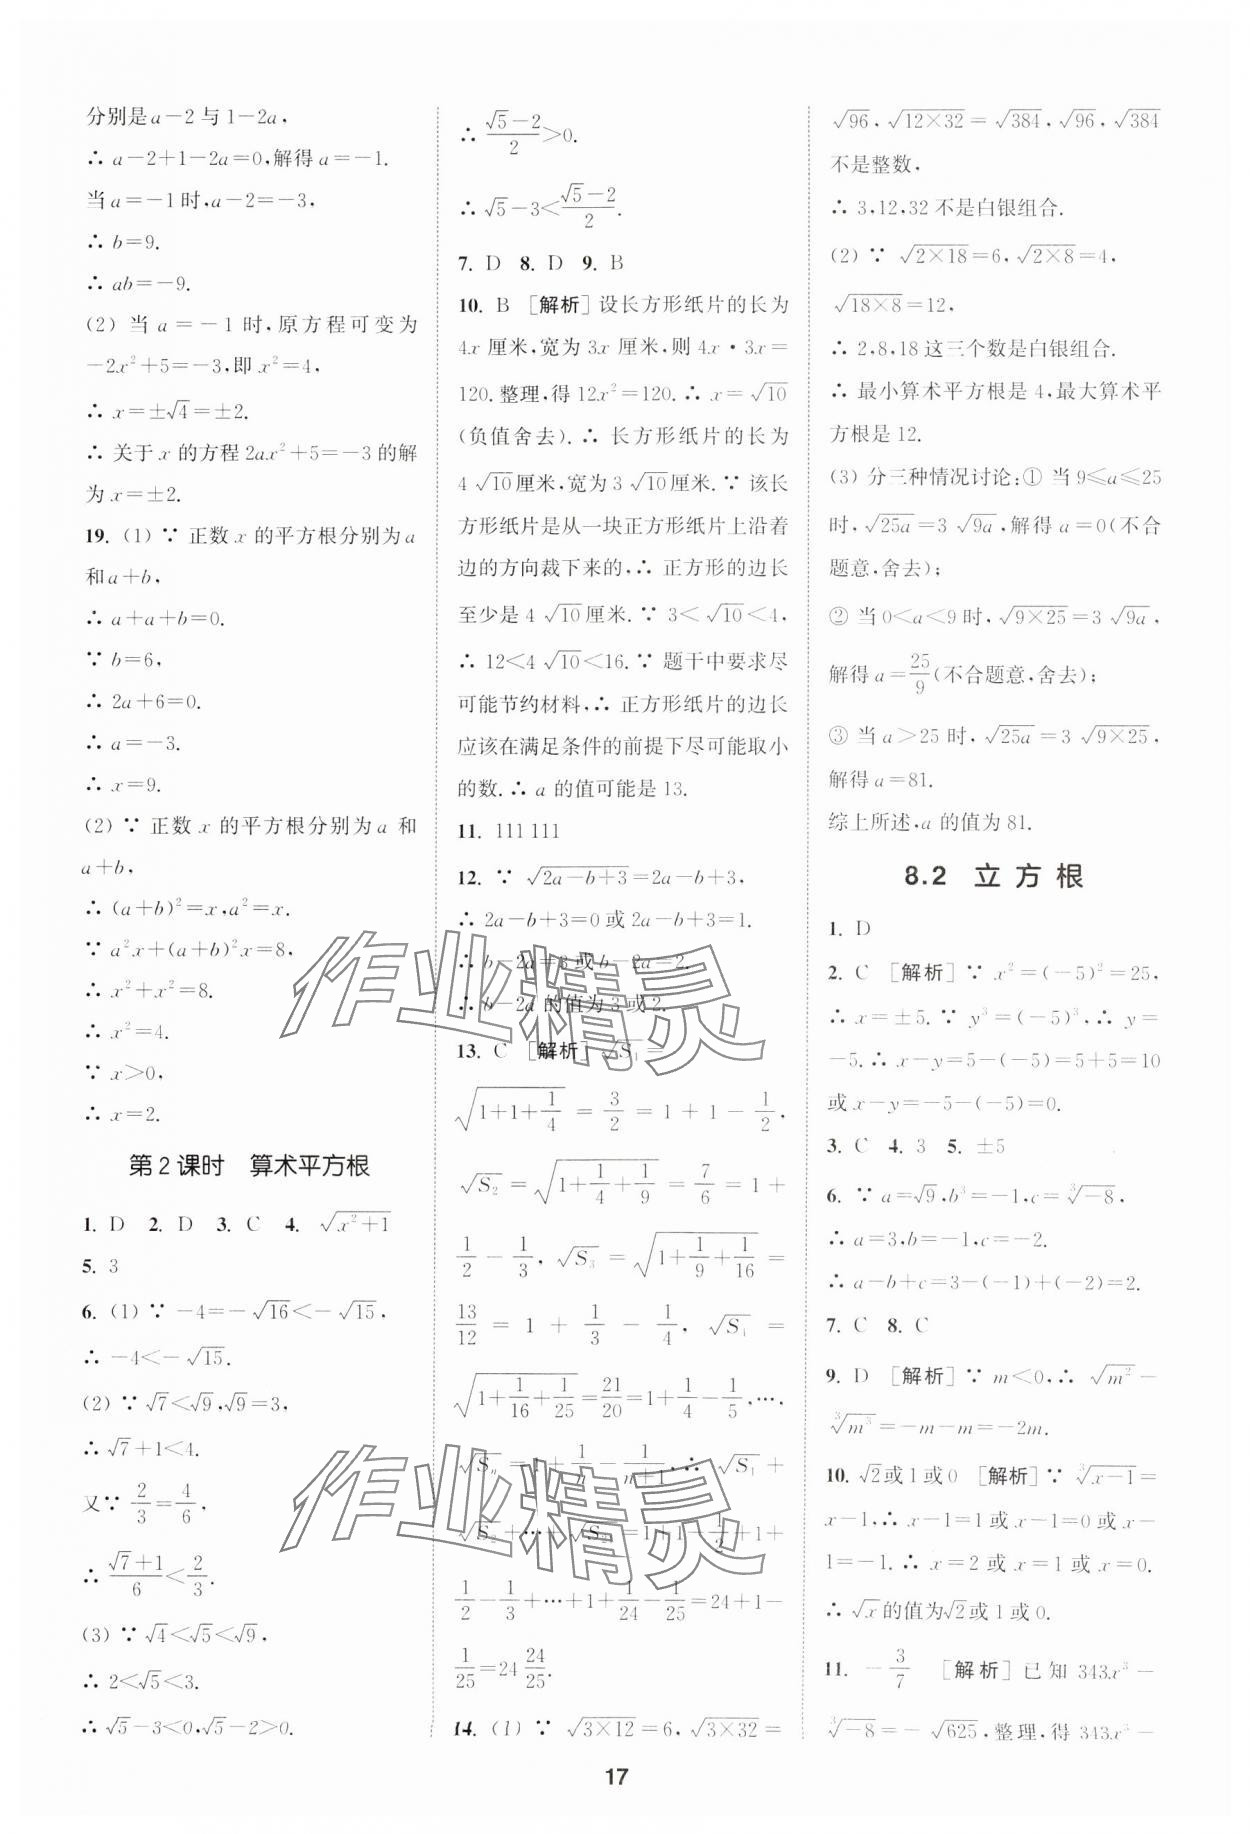 分别是a－2与1－2a，
∴ a－2＋1－2a＝0，解得a＝－1.
当a＝－1时，a－2＝－3，
∴ b＝9.
∴ ab＝－9.
(2) 当a＝－1时，原方程可变为
－2x²＋5＝－3，即x²＝4，
∴ x＝±√4＝±2.
∴ 关于x的方程2ax²＋5＝－3的解
为x＝±2.
19. (1) ∵ 正数x的平方根分别为a
和a＋b，
∴ a＋a＋b＝0.
∵ b＝6，
∴ 2a＋6＝0.
∴ a＝－3.
∴ x＝9.
(2) ∵ 正数x的平方根分别为a和
a＋b，
∴ (a＋b)²＝x，a²＝x.
∵ a²x＋(a＋b)²x＝8，
∴ x²＋x²＝8.
∴ x²＝4.
∵ x＞0，
∴ x＝2.
第2课时 算术平方根
1. D 2. D 3. C 4. √(x²＋1)
5. 3
6. (1) ∵ －4＝－√16＜－√15，
∴ －4＜－√15.
(2) ∵ √7＜√9，√9＝3，
∴ √7＋1＜4.
又∵ 2/3＝4/6，
∴ (√7＋1)/6＜2/3.
(3) ∵ √4＜√5＜√9，
∴ 2＜√5＜3.
∴ √5－3＜0，√5－2＞0.
∴ (√5－2)/2＞0.
∴ √5－3＜(√5－2)/2.
7. D 8. D 9. B
10. B [解析]设长方形纸片的长为
4x厘米，宽为3x厘米，则4x·3x＝
120.整理，得12x²＝120.∴ x＝√10
(负值舍去).∴ 长方形纸片的长为
4√10厘米，宽为3√10厘米.∵ 该长
方形纸片是从一块正方形纸片上沿着
边的方向裁下来的，∴ 正方形的边长
至少是4√10厘米.∵ 3＜√10＜4，
∴ 12＜4√10＜16.∵ 题干中要求尽
可能节约材料，∴ 正方形纸片的边长
应该在满足条件的前提下尽可能取小
的数.∴ a的值可能是13.
11. 111 111
12. ∵ √(2a－b＋3)＝2a－b＋3，
∴ 2a－b＋3＝0或2a－b＋3＝1.
∴ b－2a＝3或b－2a＝2.
∴ b－2a的值为3或2.
13. C [解析]√S₁＝
√(1＋1＋1/4)＝3/2＝1＋1－1/2，
√S₂＝√(1＋1/4＋1/9)＝7/6＝1＋
1/2－1/3，√S₃＝√(1＋1/9＋1/16)＝
13/12＝1＋1/3－1/4，√S₄＝
√(1＋1/16＋1/25)＝21/20＝1＋1/4－1/5，…，
√Sₙ＝1＋1/n－1/(n＋1).∴ √S₁＋
√S₂＋…＋√S₂₄＝1＋1－1/2＋1＋
1/2－1/3＋…＋1＋1/24－1/25＝24＋1－
1/25＝24 24/25.
14. (1) ∵ √(3×12)＝6，√(3×32)＝
√96，√(12×32)＝√384，√96，√384
不是整数，
∴ 3，12，32不是白银组合.
(2) ∵ √(2×18)＝6，√(2×8)＝4，
√(18×8)＝12，
∴ 2，8，18这三个数是白银组合.
∴ 最小算术平方根是4，最大算术平
方根是12.
(3) 分三种情况讨论：① 当9≤a≤25
时，√(25a)＝3√(9a)，解得a＝0(不合
题意，舍去)；
② 当0＜a＜9时，√(9×25)＝3√(9a)，
解得a＝25/9(不合题意，舍去)；
③ 当a＞25时，√(25a)＝3√(9×25)，
解得a＝81.
综上所述，a的值为81.
8.2 立方根
1. D
2. C [解析]∵ x²＝(－5)²＝25，
∴ x＝±5.∵ y³＝(－5)³，∴ y＝
－5.∴ x－y＝5－(－5)＝5＋5＝10
或x－y＝－5－(－5)＝0.
3. C 4. 3 5. ±5
6. ∵ a＝√9，b³＝－1，c＝∛(－8)，
∴ a＝3，b＝－1，c＝－2.
∴ a－b＋c＝3－(－1)＋(－2)＝2.
7. C 8. C
9. D [解析]∵ m＜0，∴ √(m²)－
∛(m³)＝－m－m＝－2m.
10. √2或1或0 [解析]∵ ∛(x－1)＝
x－1，∴ x－1＝1或x－1＝0或x－
1＝－1.∴ x＝2或x＝1或x＝0.
∴ √x的值为√2或1或0.
11. －3/7 [解析]已知343x³－
∛(－8)＝－√625，整理，得343x³－
17
作业精灵
作业精灵